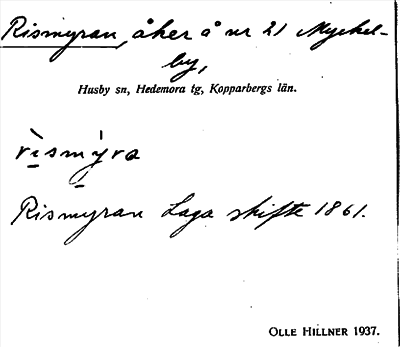 Rismyran, åker å nr 21 Myckel-
by,
Husby sn, Hedemora tg, Kopparbergs län.
rìsmýra
Rismyran Laga skifte 1861.
OLLE HILLNER 1937.